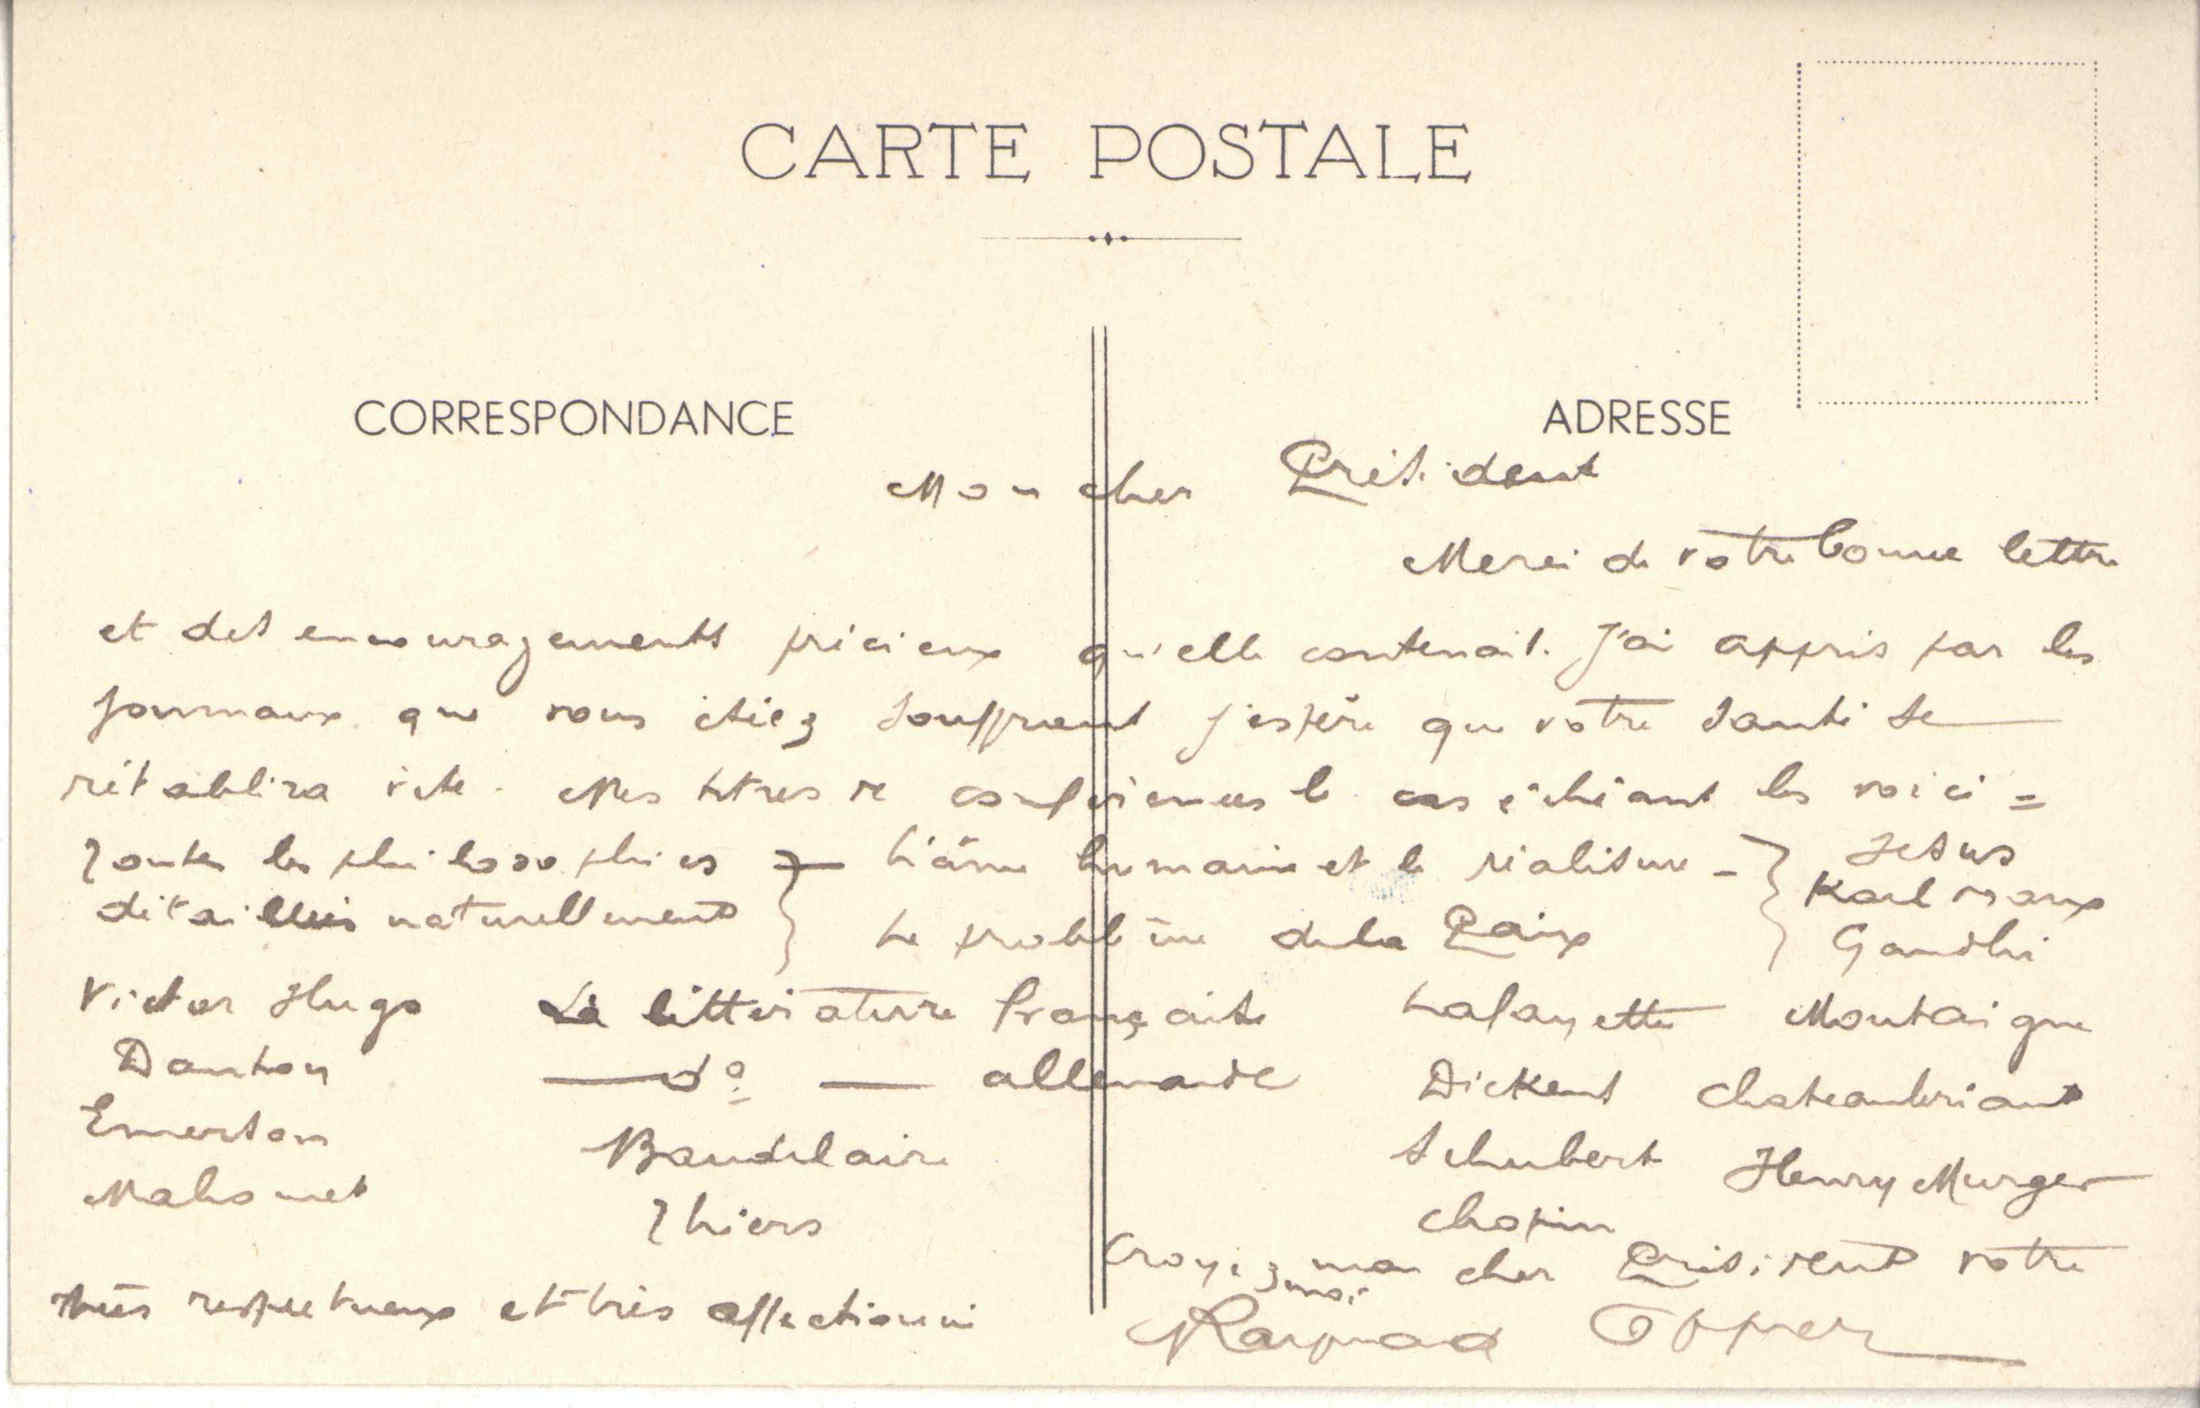 CARTE POSTALE
CORRESPONDANCE
ADRESSE
Mon cher Président
Merci de votre bonne lettre
et des encouragements précieux qu'elle contenait. J'ai appris par les
journaux que vous étiez souffrant j'espère que votre santé se
rétablira vite. Mes titres de conférences le cas échéant les voici =
Toutes les philosophies } L'âme humaine et le réalisme - } Jesus
détaillées naturellement } Le problème de la Paix } Karl Marx
Gandhi
Victor Hugo La littérature française Lafayette Montaigne
Danton — dº — allemande Dickens Chateaubriant
Emerson Baudelaire Schubert Henry Murger
Mahomet Thiers Chopin
Croyez moi mon cher Président votre
très respectueux et très affectionné
Raymond Offner